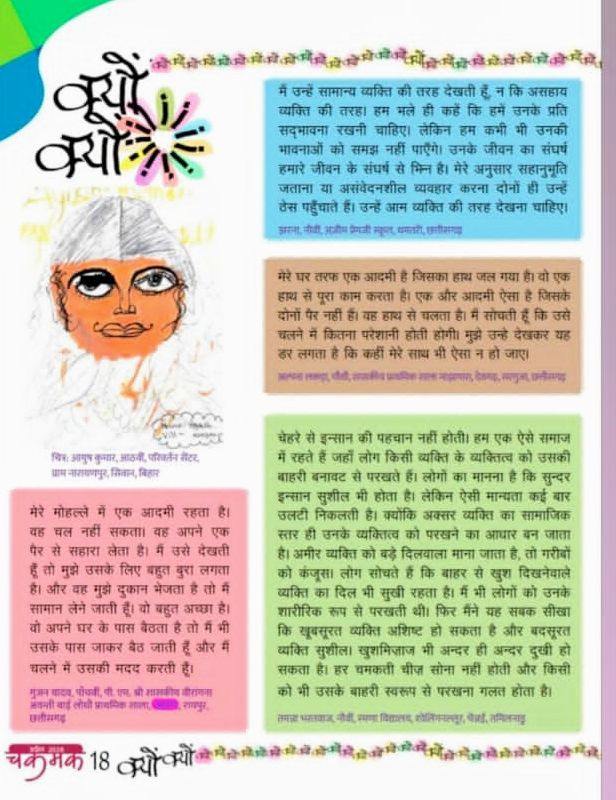 क्यों
क्यों
मैं उन्हें सामान्य व्यक्ति की तरह देखती हूँ, न कि असहाय
व्यक्ति की तरह। हम भले ही कहें कि हमें उनके प्रति
सद्भावना रखनी चाहिए। लेकिन हम कभी भी उनकी
भावनाओं को समझ नहीं पाएँगे। उनके जीवन का संघर्ष
हमारे जीवन के संघर्ष से भिन्न है। मेरे अनुसार सहानुभूति
जताना या असंवेदनशील व्यवहार करना दोनों ही उन्हें
ठेस पहुँचाते हैं। उन्हें आम व्यक्ति की तरह देखना चाहिए।
झरना, नौवीं, अज़ीम प्रेमजी स्कूल, धमतरी, छत्तीसगढ़
मेरे घर तरफ एक आदमी है जिसका हाथ जल गया है। वो एक
हाथ से पूरा काम करता है। एक और आदमी ऐसा है जिसके
दोनों पैर नहीं हैं। वह हाथ से चलता है। मैं सोचती हूँ कि उसे
चलने में कितना परेशानी होती होगी। मुझे उन्हे देखकर यह
डर लगता है कि कहीं मेरे साथ भी ऐसा न हो जाए।
अल्पना लकड़ा, चौथी, शासकीय प्राथमिक शाला, सरगुजा, छत्तीसगढ़
चित्र: आयुष कुमार, आठवीं, परिवर्तन सेंटर,
ग्राम नारायणपुर, सिवान, बिहार
मेरे मोहल्ले में एक आदमी रहता है।
वह चल नहीं सकता। वह अपने एक
पैर से सहारा लेता है। मैं उसे देखती
हूँ तो मुझे उसके लिए बहुत बुरा लगता
है। और वह मुझे दुकान भेजता है तो मैं
सामान लेने जाती हूँ। वो बहुत अच्छा है।
वो अपने घर के पास बैठता है तो मैं भी
उसके पास जाकर बैठ जाती हूँ और मैं
चलने में उसकी मदद करती हूँ।
गुंजन यादव, पाँचवीं, पी. एम. श्री शासकीय वीरांगना
अवन्ती बाई लोधी प्राथमिक शाला, रायपुर,
छत्तीसगढ़
चेहरे से इन्सान की पहचान नहीं होती। हम एक ऐसे समाज
में रहते हैं जहाँ लोग किसी व्यक्ति के व्यक्तित्व को उसकी
बाहरी बनावट से परखते हैं। लोगों का मानना है कि सुन्दर
इन्सान सुशील भी होता है। लेकिन ऐसी मान्यता कई बार
उलटी निकलती है। क्योंकि अक्सर व्यक्ति का सामाजिक
स्तर ही उनके व्यक्तित्व को परखने का आधार बन जाता
है। अमीर व्यक्ति को बड़े दिलवाला माना जाता है, तो गरीबों
को कंजूस। लोग सोचते हैं कि बाहर से खुश दिखनेवाले
व्यक्ति का दिल भी सुखी रहता है। मैं भी लोगों को उनके
शारीरिक रूप से परखती थी। फिर मैंने यह सबक सीखा
कि खूबसूरत व्यक्ति अशिष्ट हो सकता है और बदसूरत
व्यक्ति सुशील। खुशमिज़ाज भी अन्दर ही अन्दर दुखी हो
सकता है। हर चमकती चीज़ सोना नहीं होती और किसी
को भी उसके बाहरी स्वरूप से परखना गलत होता है।
तमन्ना भारतवाज, नौवीं, रमणा विद्यालय, शोलिंगनल्लूर, चेन्नई, तमिलनाडु
चकमक 18 क्यों क्यों